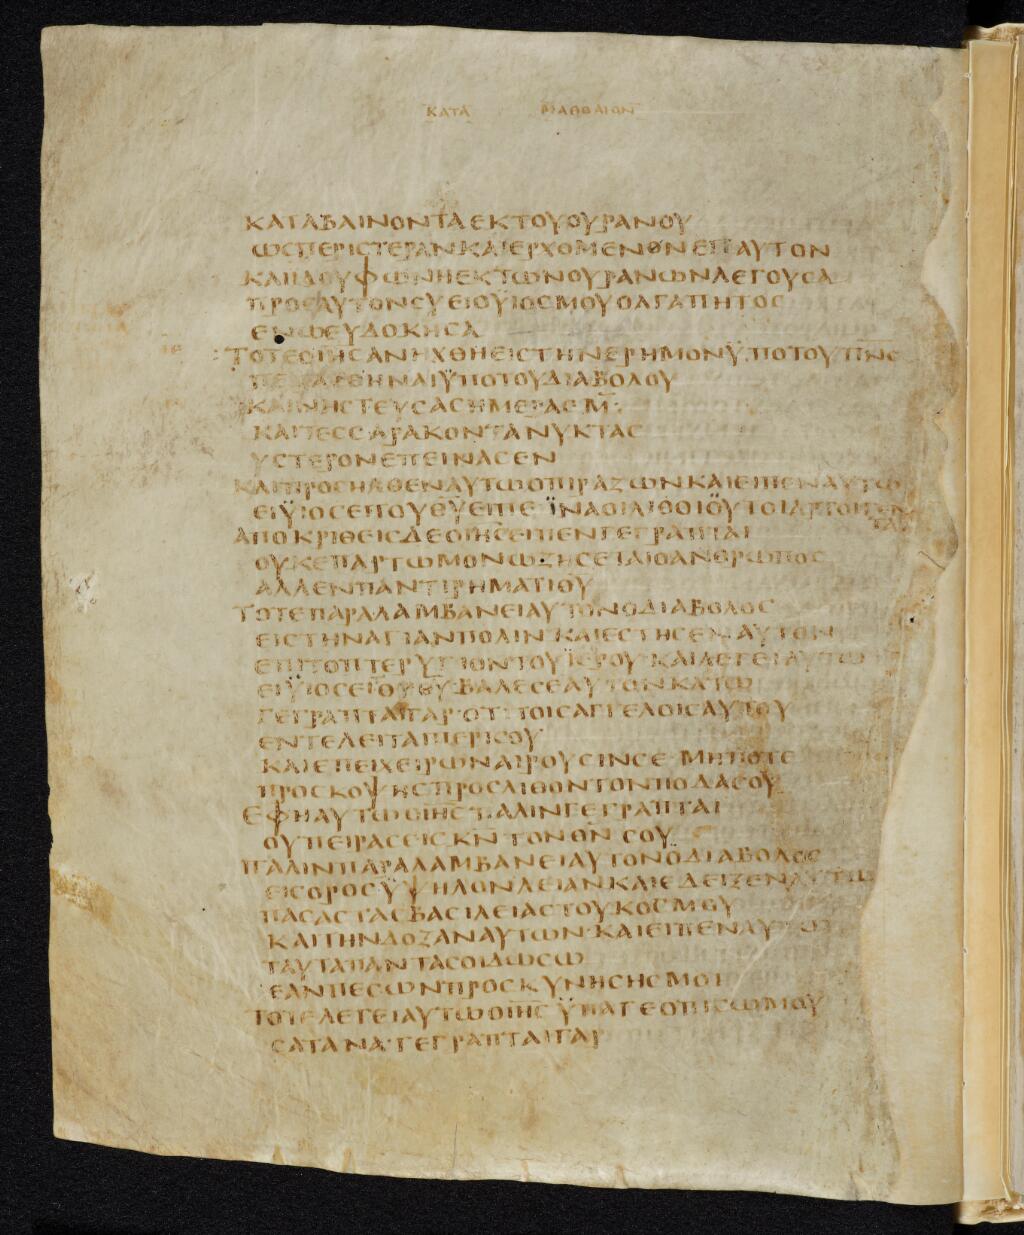 ΚΑΤΑ ΜΑΘΘΑΙΟΝ
ΚΑΤΑΒΑΙΝΟΝΤΑ ΕΚ ΤΟΥ ΟΥΡΑΝΟΥ
ΩΣ ΠΕΡΙΣΤΕΡΑΝ ΚΑΙ ΕΡΧΟΜΕΝΟΝ ΕΙΣ ΑΥΤΟΝ
ΚΑΙ ΙΔΟΥ ΦΩΝΗ ΕΚ ΤΩΝ ΟΥΡΑΝΩΝ ΛΕΓΟΥΣΑ
ΠΡΟΣ ΑΥΤΟΝ ΣΥ ΕΙ Ο ΥΙΟΣ ΜΟΥ Ο ΑΓΑΠΗΤΟΣ
ΕΝ Ω ΕΥΔΟΚΗΣΑ
ΤΟΤΕ Ο ΙΗΣ ΑΝΗΧΘΗ ΕΙΣ ΤΗΝ ΕΡΗΜΟΝ ΫΠΟ ΤΟΥ ΠΝΣ
ΠΕΙΡΑΣΘΗΝΑΙ ΫΠΟ ΤΟΥ ΔΙΑΒΟΛΟΥ
ΚΑΙ ΝΗΣΤΕΥΣΑΣ ΗΜΕΡΑΣ Μ
ΚΑΙ ΤΕΣΣΑΡΑΚΟΝΤΑ ΝΥΚΤΑΣ
ΥΣΤΕΡΟΝ ΕΠΕΙΝΑΣΕΝ
ΚΑΙ ΠΡΟΣΗΛΘΕΝ ΑΥΤΩ Ο ΠΙΡΑΖΩΝ ΚΑΙ ΕΙΠΕΝ ΑΥΤΩ
ΕΙ ΫΙΟΣ ΕΙ ΤΟΥ ΘΥ ΕΙΠΕ ΪΝΑ ΟΙ ΛΙΘΟΙ ΟΥΤΟΙ ΑΡΤΟΙ ΓΕΝ
ΤΑΙ
ΑΠΟΚΡΙΘΕΙΣ ΔΕ Ο ΙΗΣ ΕΙΠΕΝ ΓΕΓΡΑΠΤΑΙ
ΟΥΚ ΕΠ ΑΡΤΩ ΜΟΝΩ ΖΗΣΕΤΑΙ Ο ΑΝΘΡΩΠΟΣ
ΑΛΛ ΕΝ ΠΑΝΤΙ ΡΗΜΑΤΙ ΘΥ
ΤΟΤΕ ΠΑΡΑΛΑΜΒΑΝΕΙ ΑΥΤΟΝ Ο ΔΙΑΒΟΛΟΣ
ΕΙΣ ΤΗΝ ΑΓΙΑΝ ΠΟΛΙΝ ΚΑΙ ΕΣΤΗΣΕΝ ΑΥΤΟΝ
ΕΠΙ ΤΟ ΠΤΕΡΥΓΙΟΝ ΤΟΥ ΪΕΡΟΥ ΚΑΙ ΛΕΓΕΙ ΑΥΤΩ
ΕΙ ΫΙΟΣ ΕΙ ΤΟΥ ΘΥ ΒΑΛΕ ΣΕΑΥΤΟΝ ΚΑΤΩ
ΓΕΓΡΑΠΤΑΙ ΓΑΡ ΟΤΙ ΤΟΙΣ ΑΓΓΕΛΟΙΣ ΑΥΤΟΥ
ΕΝΤΕΛΕΙΤΑΙ ΠΕΡΙ ΣΟΥ
ΚΑΙ ΕΠΕΙ ΧΕΙΡΩΝ ΑΙΡΟΥΣΙΝ ΣΕ ΜΗΠΟΤΕ
ΠΡΟΣΚΟΨΗΣ ΠΡΟΣ ΛΙΘΟΝ ΤΟΝ ΠΟΔΑ ΣΟΥ
ΕΦΗ ΑΥΤΩ Ο ΙΗΣ ΠΑΛΙΝ ΓΕΓΡΑΠΤΑΙ
ΟΥ ΠΕΙΡΑΣΕΙΣ ΚΝ ΤΟΝ ΘΝ ΣΟΥ
ΠΑΛΙΝ ΠΑΡΑΛΑΜΒΑΝΕΙ ΑΥΤΟΝ Ο ΔΙΑΒΟΛΟΣ
ΕΙΣ ΟΡΟΣ ΫΨΗΛΟΝ ΛΕΙΑΝ ΚΑΙ ΕΔΕΙΞΕΝ ΑΥΤΩ
ΠΑΣΑΣ ΤΑΣ ΒΑΣΙΛΕΙΑΣ ΤΟΥ ΚΟΣΜΟΥ
ΚΑΙ ΤΗΝ ΔΟΞΑΝ ΑΥΤΩΝ ΚΑΙ ΕΙΠΕΝ ΑΥΤΩ
ΤΑΥΤΑ ΠΑΝΤΑ ΣΟΙ ΔΩΣΩ
ΕΑΝ ΠΕΣΩΝ ΠΡΟΣΚΥΝΗΣΗΣ ΜΟΙ
ΤΟΤΕ ΛΕΓΕΙ ΑΥΤΩ Ο ΙΗΣ ΫΠΑΓΕ ΟΠΙΣΩ ΜΟΥ
ΣΑΤΑΝΑ ΓΕΓΡΑΠΤΑΙ ΓΑΡ